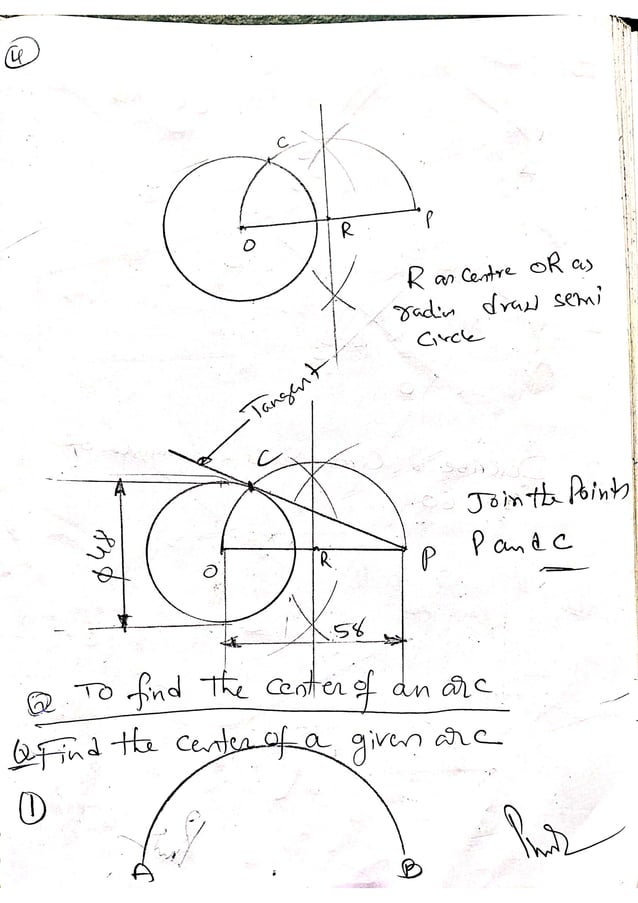 4
C
O
R
P
R as Centre OR as
radius draw semi
Circle
Tangent
C
Join the Points
P and C
φ48
O
R
P
58
To find the center of an arc
Q Find the center of a given arc
1
A
B